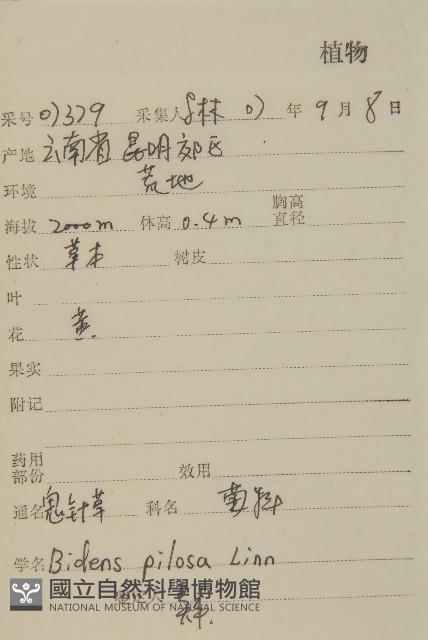 植物
采号 01379 采集人 林 01 年 9 月 8 日
产地 云南省昆明郊区
环境 荒地
海拔 2000m 体高 0.4m 胸高直径
性状 草本 树皮
叶
花 黄
果实
附记
药用部份 效用
通名 鬼针草 科名 菊科
学名 Bidens pilosa Linn
國立自然科學博物館
NATIONAL MUSEUM OF NATURAL SCIENCE